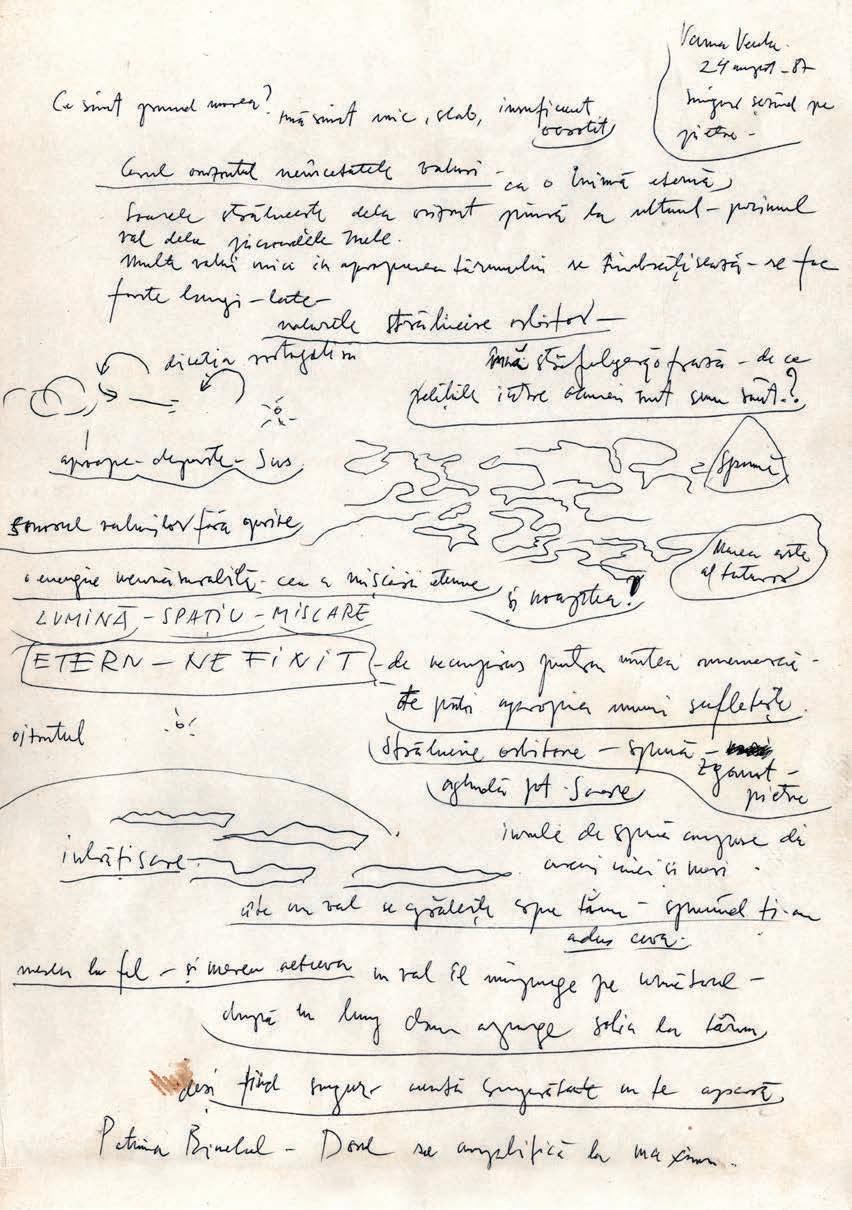 Vama Veche.
24 august - 87
singur șezînd pe
pietre -
Ce simt privind marea? mă simt mic, slab, insuficient
ocrotit
Cerul orizontul neîncetatele valuri - ca o inimă eternă
Soarele strălucește dela orizont pînă la ultimul - primul
val dela picioarele mele.
Multe valuri mici in apropierea tărmului se îmbrățisează - se fac
foarte lungi - late -
valurile strălucire orbitor -
dicția
mă o frază - de ce
relațiile intre oameni sunt cum sînt?
aproape - departe - Sus
Spumă
sonorul valurilor fără oprire
Marea este
al tuturor
o energie nemăsurabilă - cea a mișcării eterne
și noaptea?
LUMINĂ - SPAȚIU - MIȘCARE
ETERN - NEFINIT - de necuprins pentru mintea omenească -
te poți apropia numai sufletește
strălucire orbitoare - spumă -
zgomot -
pietre
oglindă pt. Soare
insule de spumă compuse din
mici și mari.
îmbrățisare
cîte un val se grăbește spre tărm - spunînd ți-am
adus ceva.
mereu la fel - și mereu altceva un val îl împinge pe următorul -
după un lung drum ajunge solia la tărm
deși fiind singur - această singurătate nu te apasă
Patima Binelui - Dorul se amplifică la maxim.